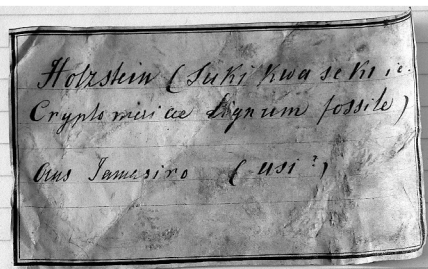 Holzstein (Suki kwaseki ie.
Cryptomeriae Lignum fossile)
Aus Jamasiro (usi?)